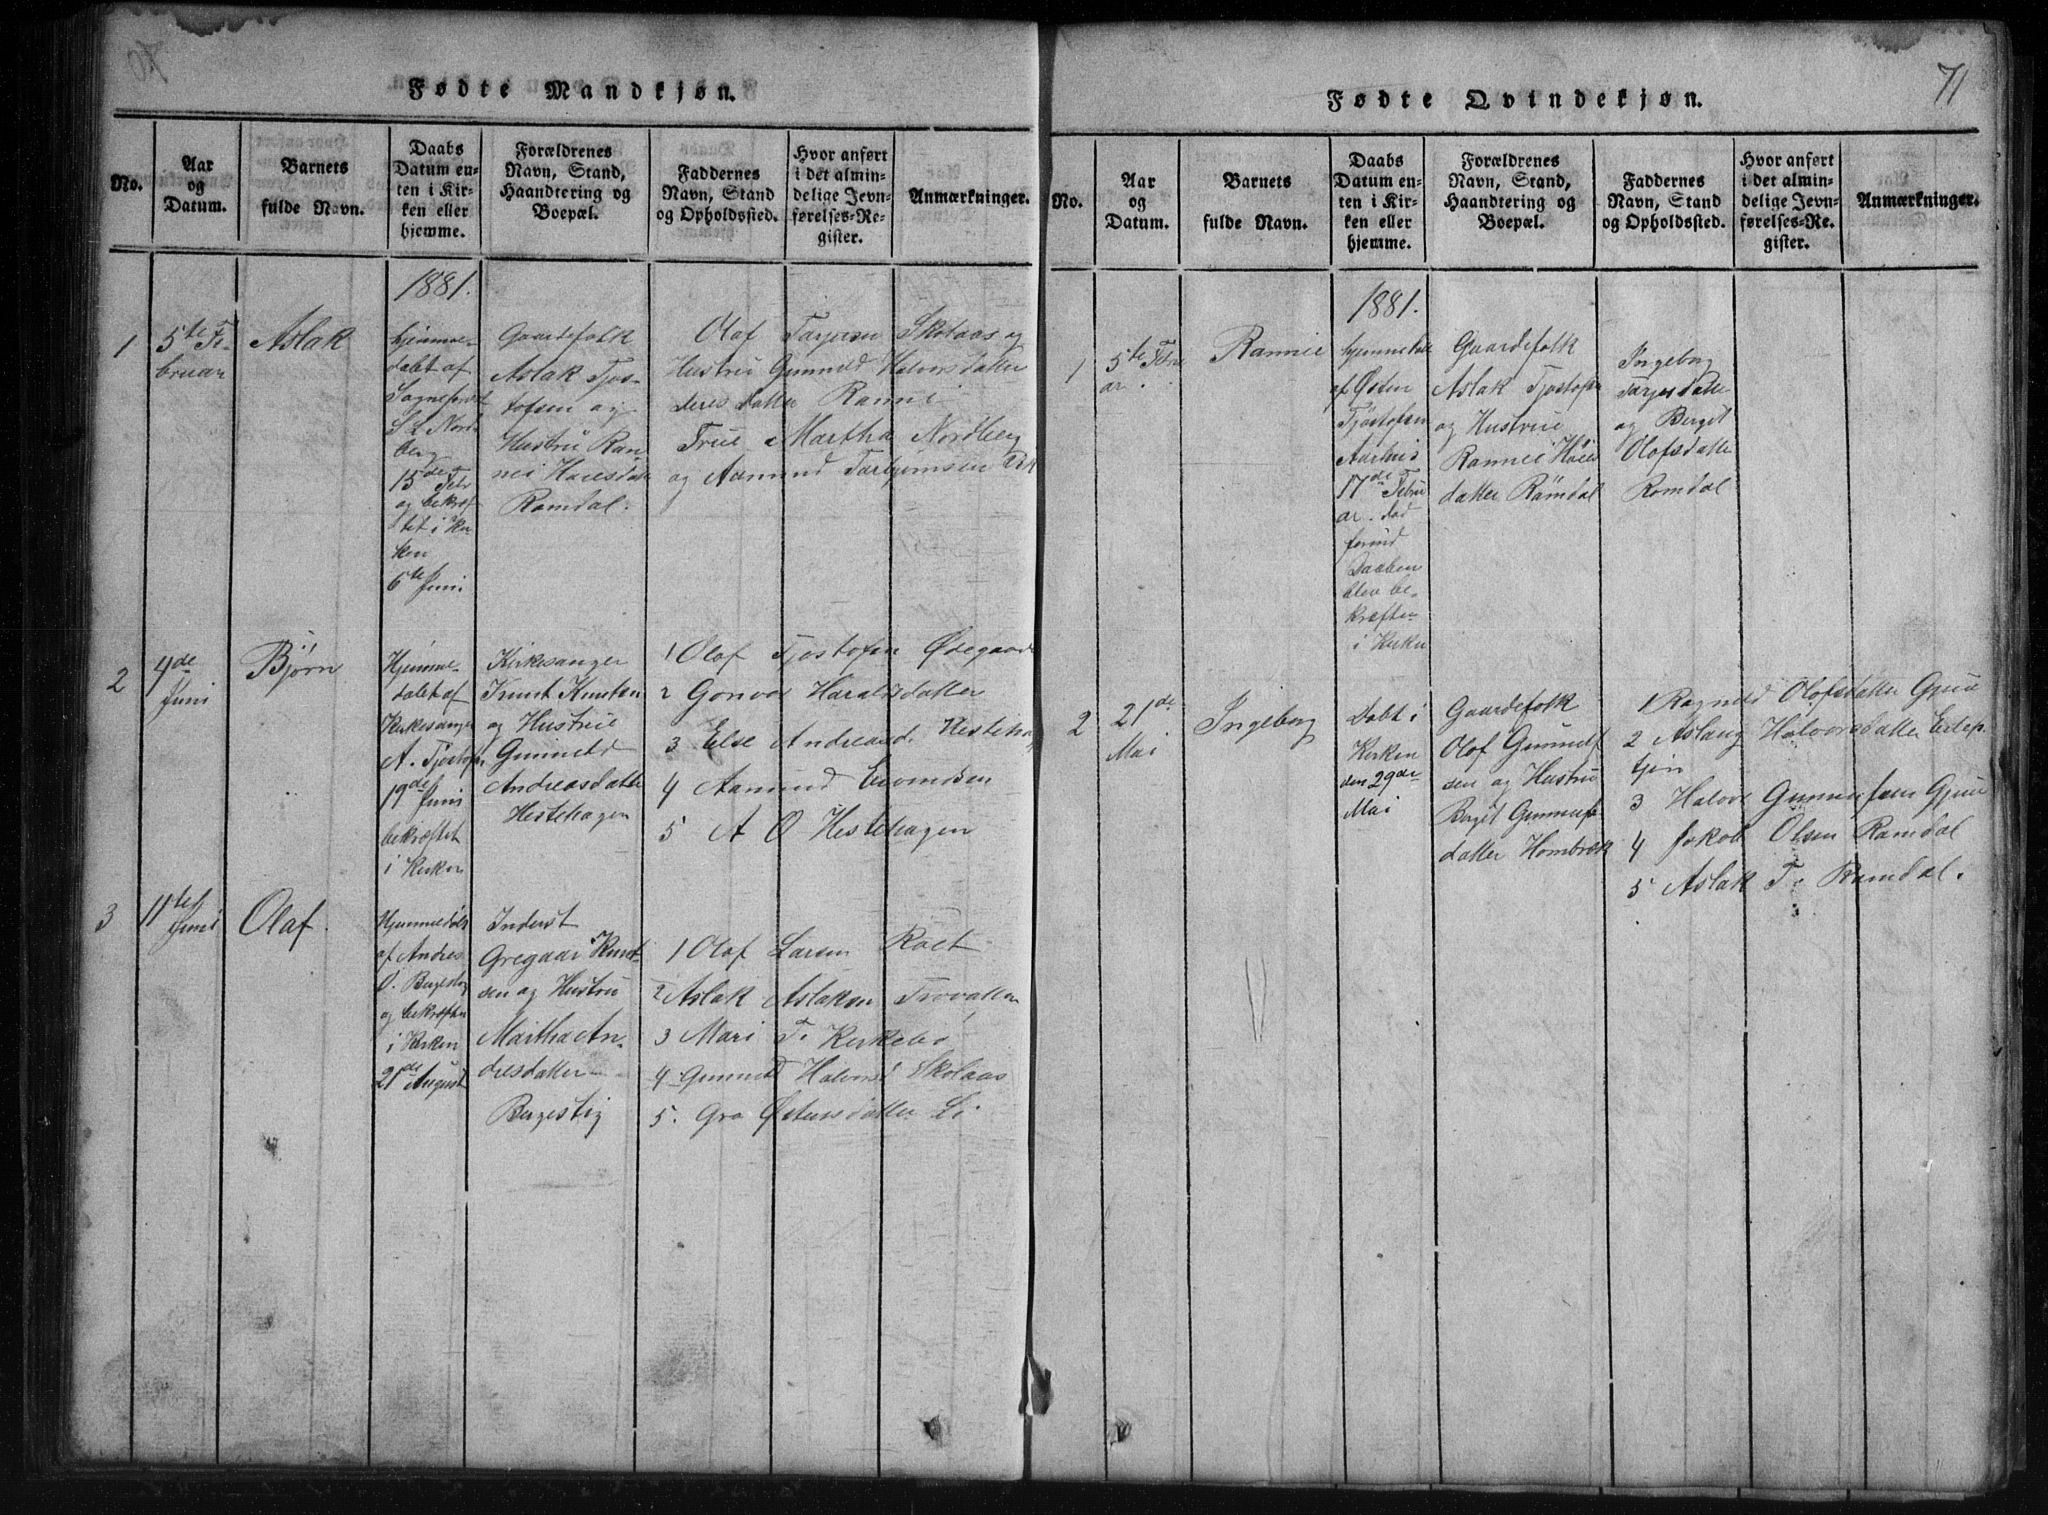 70
Fødte Mandkjøn.
No.
Aar
og
Datum.
Barnets
fulde Navn.
Daabs
Datum en-
ten i Kir-
ken eller
hjemme.
Forældrenes
Navn, Stand,
Haandtering og
Boepæl.
Faddernes
Navn, Stand
og Opholdssted.
Hvor anført
i det almin-
delige Jevn-
førelses-Re-
gister.
Anmærkninger.
1881.
1
5te Fe-
bruar
Aslak
hjemme-
døbt af
Sognepræst
Nord-
berg
15de Feb
og bekræf-
tet i Kir
ken
6te Juni
Gaardefolk
Aslak Tjos-
tofsen og
Hustru Ran-
nei
Ramdal.
Olaf Tarjesen Skotaas og
Hustrue Gunnild Halvorsdatter
deres datter Rannei
Frue Martha Nordberg
og Aamund Tarbjørnsen
2
4de
Juni
Bjørn
Hjemme-
døbt af
Kirkesanger
A. Tjostofsen
19de Juni
bekræftet
i Kirken
Kirkesanger
Knut Knutsen
og Hustrue
Gunnild
Andreasdatter
Hestehagen
1 Olof Tjostofsen Ødegaard
2 Gonvor Haraldsdatter
3 Else Andreasd. Hesteha
4 Aamund Evendsen
5 A O Hestehagen
3
11te
Juni
Olaf.
Hjemmedøbt
af Andres
O. Bergestig
og bekræftet
i Kirken
21de August
Inderst
Gregaar Knut-
sen og Hustru
Martha An-
dresdatter
Bergestig
1 Olof Larsen Roet
2 Aslak Aslaksen Trovatten
3 Mari T. Kirkebø
4 Gunnild Halvorsd Skotaas
5. Gro Østensdatter Li
71
Fødte Qvindekjøn.
No.
Aar
og
Datum.
Barnets
fulde Navn.
Daabs
Datum en-
ten i Kir-
ken eller
hjemme.
Forældrenes
Navn, Stand,
Haandtering og
Boepæl.
Faddernes
Navn, Stand
og Opholdssted.
Hvor anført
i det almin-
delige Jevn-
førelses-Re-
gister.
Anmærkninger.
1881.
1
5te Febru
ar.
Rannei
hjemmedøbt
af Østen
Tjøstofsen
Aarhus
17de Febru
ar. død
forind
Daaben
blev be-
kræftet
i Kirken
Gaardefolk
Aslak Tjostofsen
og Hustrue
Rannei
datter Ramdal
Ingeborg
Tarjesdatter
og Berget
Olofsdatter
Romdal
2
21de
Mai
Ingeborg
Døbt i
Kirken
den 29de
Mai
Gaardefolk
Olof Gunnuf
sen og Hustru
Berget Gunnufs-
datter Hombræk
1 Ragnild Olofsdatter Gjuve
2 Aslaug Halvorsdatter Eslep-
tjøn
3 Halvor Gunnufsen Gjuve
4 Jakob Olsen Ramdal
5 Aslak T. Ramdal.